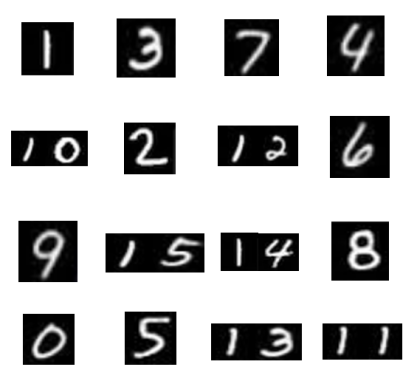 1 3 7 4
10 2 12 6
9 15 14 8
0 5 13 11